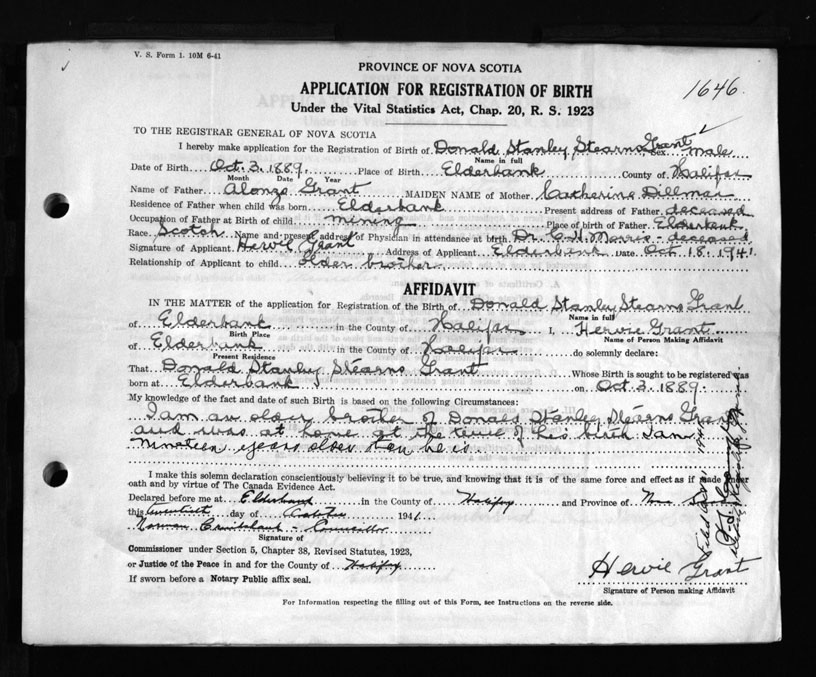 V. S. Form 1. 10M 6-41
PROVINCE OF NOVA SCOTIA
1646
APPLICATION FOR REGISTRATION OF BIRTH
Under the Vital Statistics Act, Chap. 20, R. S. 1923
TO THE REGISTRAR GENERAL OF NOVA SCOTIA
I hereby make application for the Registration of Birth of Donald Stanley Stearns Grant Sex male
Name in full
Date of Birth Oct. 3. 1889. Place of Birth Elderbank County of Halifax
Month Date Year
Name of Father Alonzo Grant MAIDEN NAME of Mother Catherine Dillman
Residence of Father when child was born Elderbank Present address of Father deceased
Occupation of Father at Birth of child mining Place of birth of Father Elderbank
Race Scotch Name and present address of Physician in attendance at birth Dr. C. H. Morris - deceased
Signature of Applicant Hervie Grant Address of Applicant Elderbank Date Oct 18. 1941
Relationship of Applicant to child older brother
AFFIDAVIT
IN THE MATTER of the application for Registration of the Birth of Donald Stanley Stearns Grant
Name in full
of Elderbank in the County of Halifax I, Hervie Grant
Birth Place Name of Person Making Affidavit
of Elderbank in the County of Halifax do solemnly declare:
Present Residence
That Donald Stanley Stearns Grant Whose Birth is sought to be registered was
born at Elderbank on Oct. 3. 1889.
My knowledge of the fact and date of such Birth is based on the following Circumstances:
I am an older brother of Donald Stanley Stearns Grant
and was at home at the time of his birth I am
nineteen years older than he is
I make this solemn declaration conscientiously believing it to be true, and knowing that it is of the same force and effect as if made under
oath and by virtue of The Canada Evidence Act.
Declared before me at Elderbank in the County of Halifax and Province of Nova
this twentieth day of October 1941
Norman Cruikshank - Councillor
Signature of
Commissioner under Section 5, Chapter 38, Revised Statutes, 1923,
or Justice of the Peace in and for the County of Halifax
Hervie Grant
If sworn before a Notary Public affix seal.
Signature of Person making Affidavit
For Information respecting the filling out of this Form, see Instructions on the reverse side.